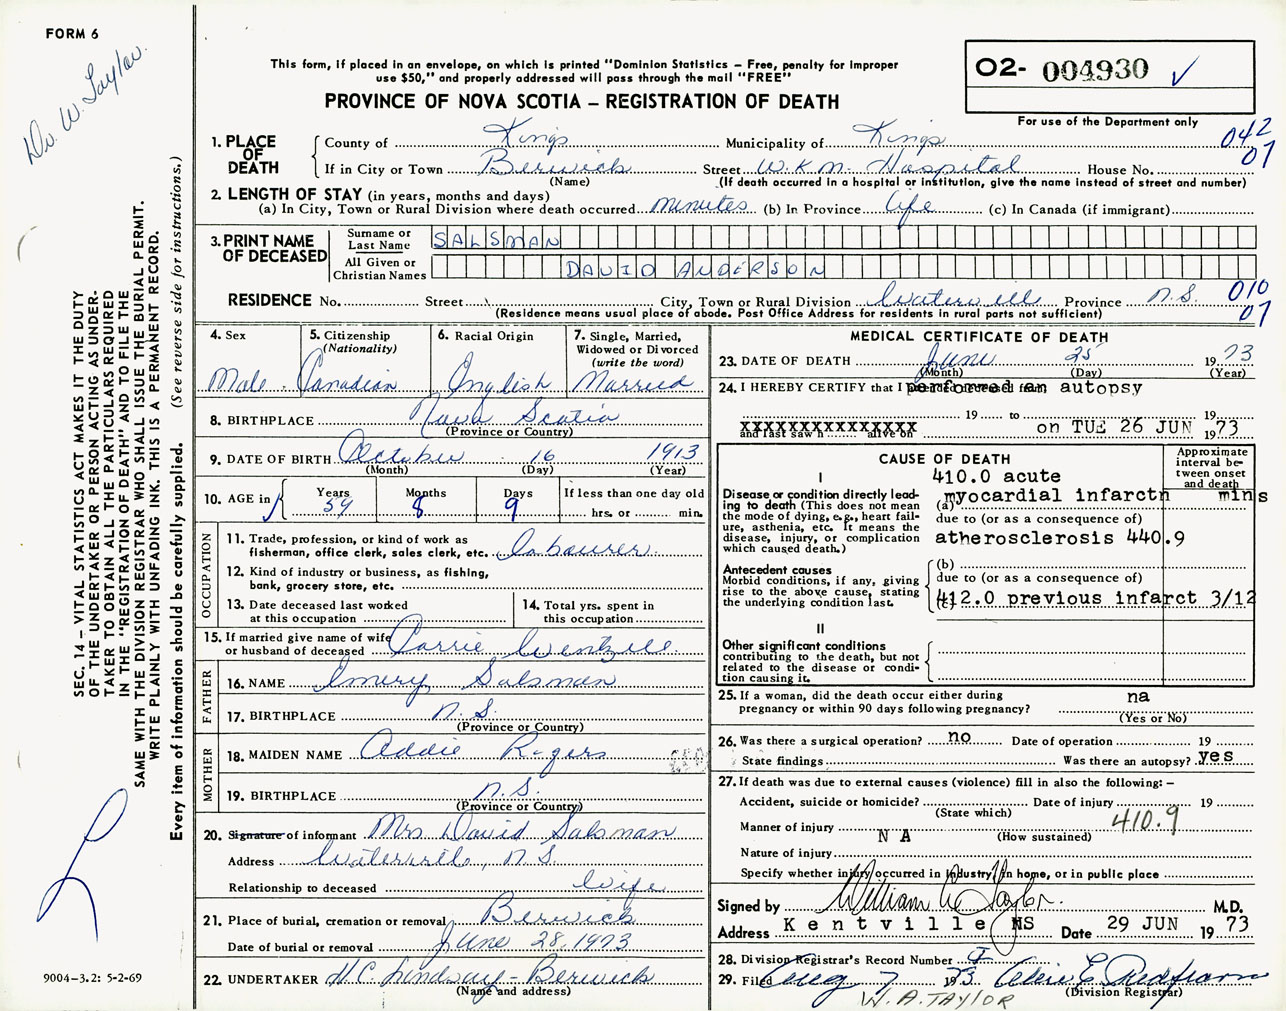 FORM 6
Dr. W. Taylor.
This form, if placed in an envelope, on which is printed "Dominion Statistics – Free, penalty for improper
use $50," and properly addressed will pass through the mail "FREE"
PROVINCE OF NOVA SCOTIA – REGISTRATION OF DEATH
O2- 004930 ✓
For use of the Department only
1. PLACE OF DEATH
County of Kings Municipality of Kings 042
If in City or Town Berwick Street W.K.M. Hospital House No. 07
(Name) (If death occurred in a hospital or institution, give the name instead of street and number)
2. LENGTH OF STAY (in years, months and days)
(a) In City, Town or Rural Division where death occurred minutes (b) In Province Life (c) In Canada (if immigrant)
3. PRINT NAME OF DECEASED
Surname or Last Name SALSMAN
All Given or Christian Names DAVID ANDERSON
RESIDENCE No. Street City, Town or Rural Division Waterville Province N.S. 010
(Residence means usual place of abode. Post Office Address for residents in rural parts not sufficient) 07
4. Sex Male
5. Citizenship (Nationality) Canadian
6. Racial Origin English
7. Single, Married, Widowed or Divorced (write the word) Married
8. BIRTHPLACE Nova Scotia
(Province or Country)
9. DATE OF BIRTH October 16 1913
(Month) (Day) (Year)
10. AGE in Years 59 Months 8 Days 9 If less than one day old
hrs. or min.
OCCUPATION
11. Trade, profession, or kind of work as
fisherman, office clerk, sales clerk, etc. labourer
12. Kind of industry or business, as fishing,
bank, grocery store, etc.
13. Date deceased last worked
at this occupation
14. Total yrs. spent in
this occupation
15. If married give name of wife
or husband of deceased Carrie Wentzell
FATHER
16. NAME Emery Salsman
17. BIRTHPLACE N.S.
(Province or Country)
MOTHER
18. MAIDEN NAME Addie Rogers
19. BIRTHPLACE N.S.
(Province or Country)
20. Signature of informant Mrs David Salsman
Address Waterville, N.S.
Relationship to deceased Wife
21. Place of burial, cremation or removal Berwick
Date of burial or removal June 28, 1973
22. UNDERTAKER H.C. Lindsay - Berwick
(Name and address)
MEDICAL CERTIFICATE OF DEATH
23. DATE OF DEATH June 25 1973
(Month) (Day) (Year)
24. I HEREBY CERTIFY that I performed an autopsy
19 to 19
XXXXXXXXXXXXXXX
and last saw h alive on on TUE 26 JUN 1973
CAUSE OF DEATH
Approximate interval between onset and death
I
Disease or condition directly lead-
ing to death (This does not mean
the mode of dying, e.g., heart fail-
ure, asthenia, etc. It means the
disease, injury, or complication
which caused death.)
410.0 acute
(a) myocardial infarctn mins
due to (or as a consequence of)
atherosclerosis 440.9
Antecedent causes
Morbid conditions, if any, giving
rise to the above cause, stating
the underlying condition last.
(b)
due to (or as a consequence of)
(c) 412.0 previous infarct 3/12
II
Other significant conditions
contributing to the death, but not
related to the disease or condi-
tion causing it.
25. If a woman, did the death occur either during
pregnancy or within 90 days following pregnancy? na
(Yes or No)
26. Was there a surgical operation? no Date of operation 19
State findings Was there an autopsy? yes
27. If death was due to external causes (violence) fill in also the following: –
Accident, suicide or homicide? Date of injury 19
(State which)
Manner of injury N A 410.9
(How sustained)
Nature of injury
Specify whether injury occurred in industry, in home, or in public place
Signed by William A Taylor. M.D.
Address Kentville NS Date 29 JUN 1973
28. Division Registrar's Record Number
29. Filed Aug 7 1973
(Division Registrar)
W. A. TAYLOR
SEC. 14 – VITAL STATISTICS ACT MAKES IT THE DUTY
OF THE UNDERTAKER OR PERSON ACTING AS UNDER-
TAKER TO OBTAIN ALL THE PARTICULARS REQUIRED
IN THE "REGISTRATION OF DEATH" AND TO FILE THE
SAME WITH THE DIVISION REGISTRAR WHO SHALL ISSUE THE BURIAL PERMIT.
WRITE PLAINLY WITH UNFADING INK. THIS IS A PERMANENT RECORD.
Every item of information should be carefully supplied. (See reverse side for instructions.)
9004-3.2: 5-2-69